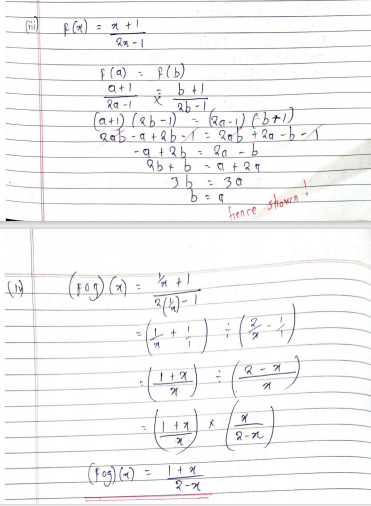 (iii) f(x) = x + 1 / 2x - 1
f(a) = f(b)
a+1 / 2a-1 × b+1 / 2b-1
(a+1)(2b-1) = (2a-1)(b+1)
2ab - a + 2b - 1 = 2ab + 2a - b - 1
-a + 2b = 2a - b
2b + b = a + 2a
3b = 3a
b = a
hence shown!
(iv) (fog)(x) = 1/x + 1 / 2(1/x) - 1
= (1/x + 1/1) ÷ (2/x - 1/1)
= (1+x / x) ÷ (2-x / x)
= (1+x / x) × (x / 2-x)
(fog)(x) = 1+x / 2-x